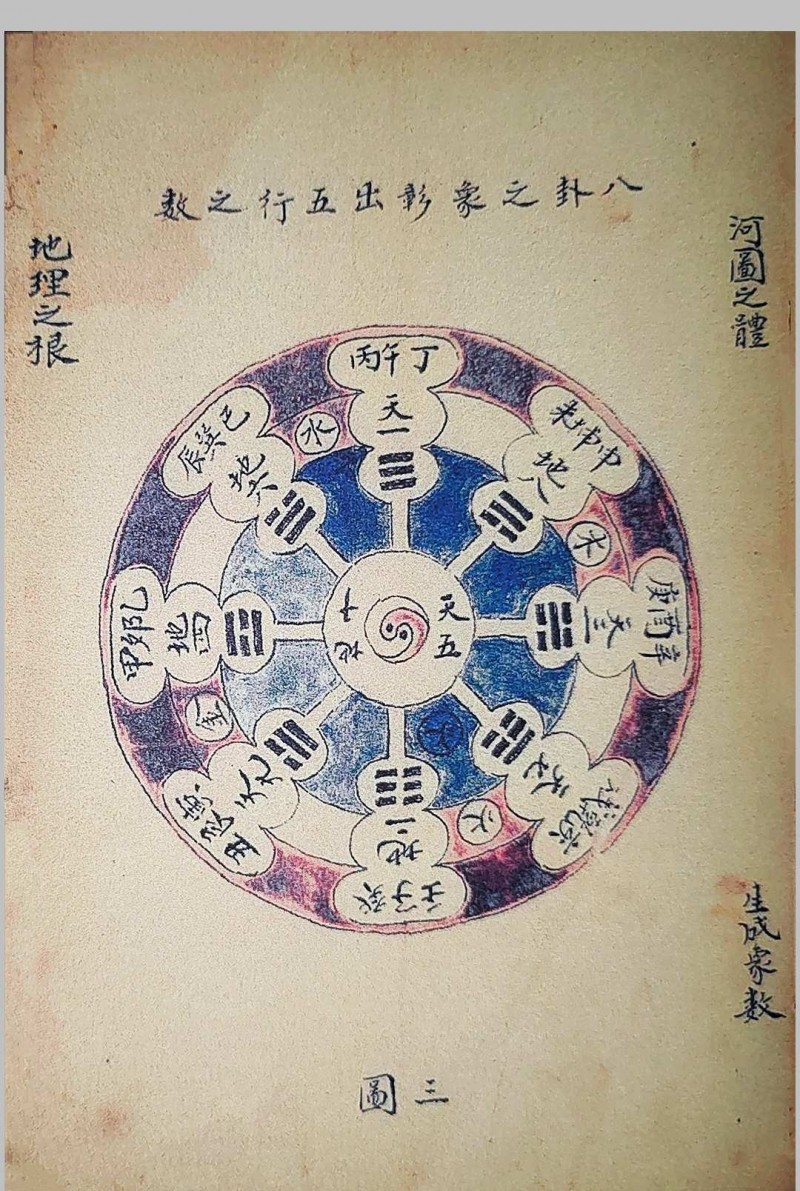 八卦之象彰出五行之數
河圖之體
地理之根
丙午丁
天一
水
未坤申
地八
木
庚酉辛
天三
天五
地十
戌乾亥
天七
火
火
壬子癸
地二
丑艮寅
天九
金
甲卯乙
地四
辰巽巳
地六
生成象數
三圖